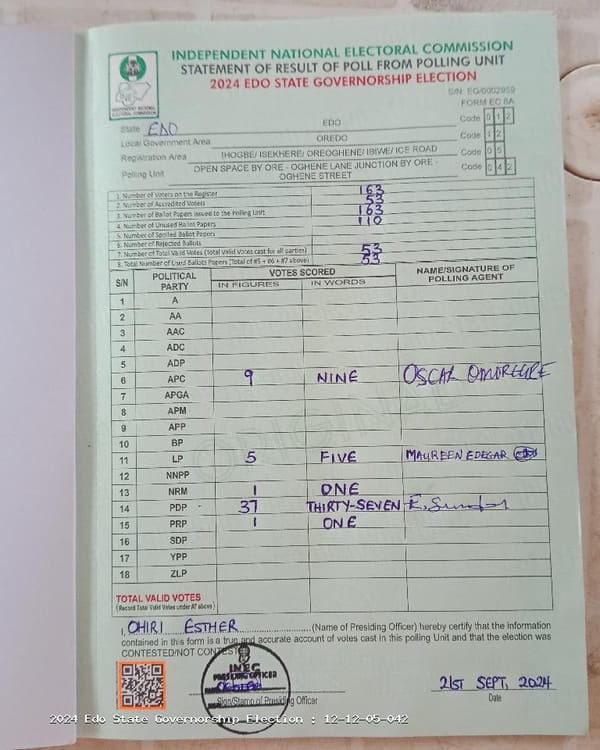 INDEPENDENT NATIONAL ELECTORAL COMMISSION
STATEMENT OF RESULT OF POLL FROM POLLING UNIT
2024 EDO STATE GOVERNORSHIP ELECTION
INDEPENDENT NATIONAL
ELECTORAL COMMISSION
S/N: EG/0002959
FORM EC 8A
State EDO EDO Code 0 1 2
Local Government Area OREDO Code 1 2
Registration Area IHOGBE/ ISEKHERE/ OREOGHENE/ IBIWE/ ICE ROAD Code 0 5
Polling Unit OPEN SPACE BY ORE - OGHENE LANE JUNCTION BY ORE - OGHENE STREET Code 0 4 2
1. Number of Voters on the Register 163
2. Number of Accredited Voters 53
3. Number of Ballot Papers issued to the Polling Unit 163
4. Number of Unused Ballot Papers 110
5. Number of Spoiled Ballot Papers
6. Number of Rejected Ballots
7. Number of Total Valid Votes (Total Valid Votes cast for all parties) 53
8. Total Number of Used Ballots Papers (Total of #5 + #6 + #7 above) 53
S/N POLITICAL PARTY VOTES SCORED NAME/SIGNATURE OF POLLING AGENT
IN FIGURES IN WORDS
1 A
2 AA
3 AAC
4 ADC
5 ADP
6 APC 9 NINE OSCAR OMOREGIE
7 APGA
8 APM
9 APP
10 BP
11 LP 5 FIVE MAUREEN EDEGAR
12 NNPP
13 NRM 1 ONE
14 PDP 37 THIRTY-SEVEN
15 PRP 1 ONE
16 SDP
17 YPP
18 ZLP
TOTAL VALID VOTES
(Record Total Valid Votes under #7 above)
I, OHIRI ESTHER (Name of Presiding Officer) hereby certify that the information
contained in this form is a true and accurate account of votes cast in this polling Unit and that the election was
CONTESTED/NOT CONTESTED
INEC
PRESIDING OFFICER
21ST SEPT, 2024
Sign/Stamp of Presiding Officer Date
2024 Edo State Governorship Election : 12-12-05-042